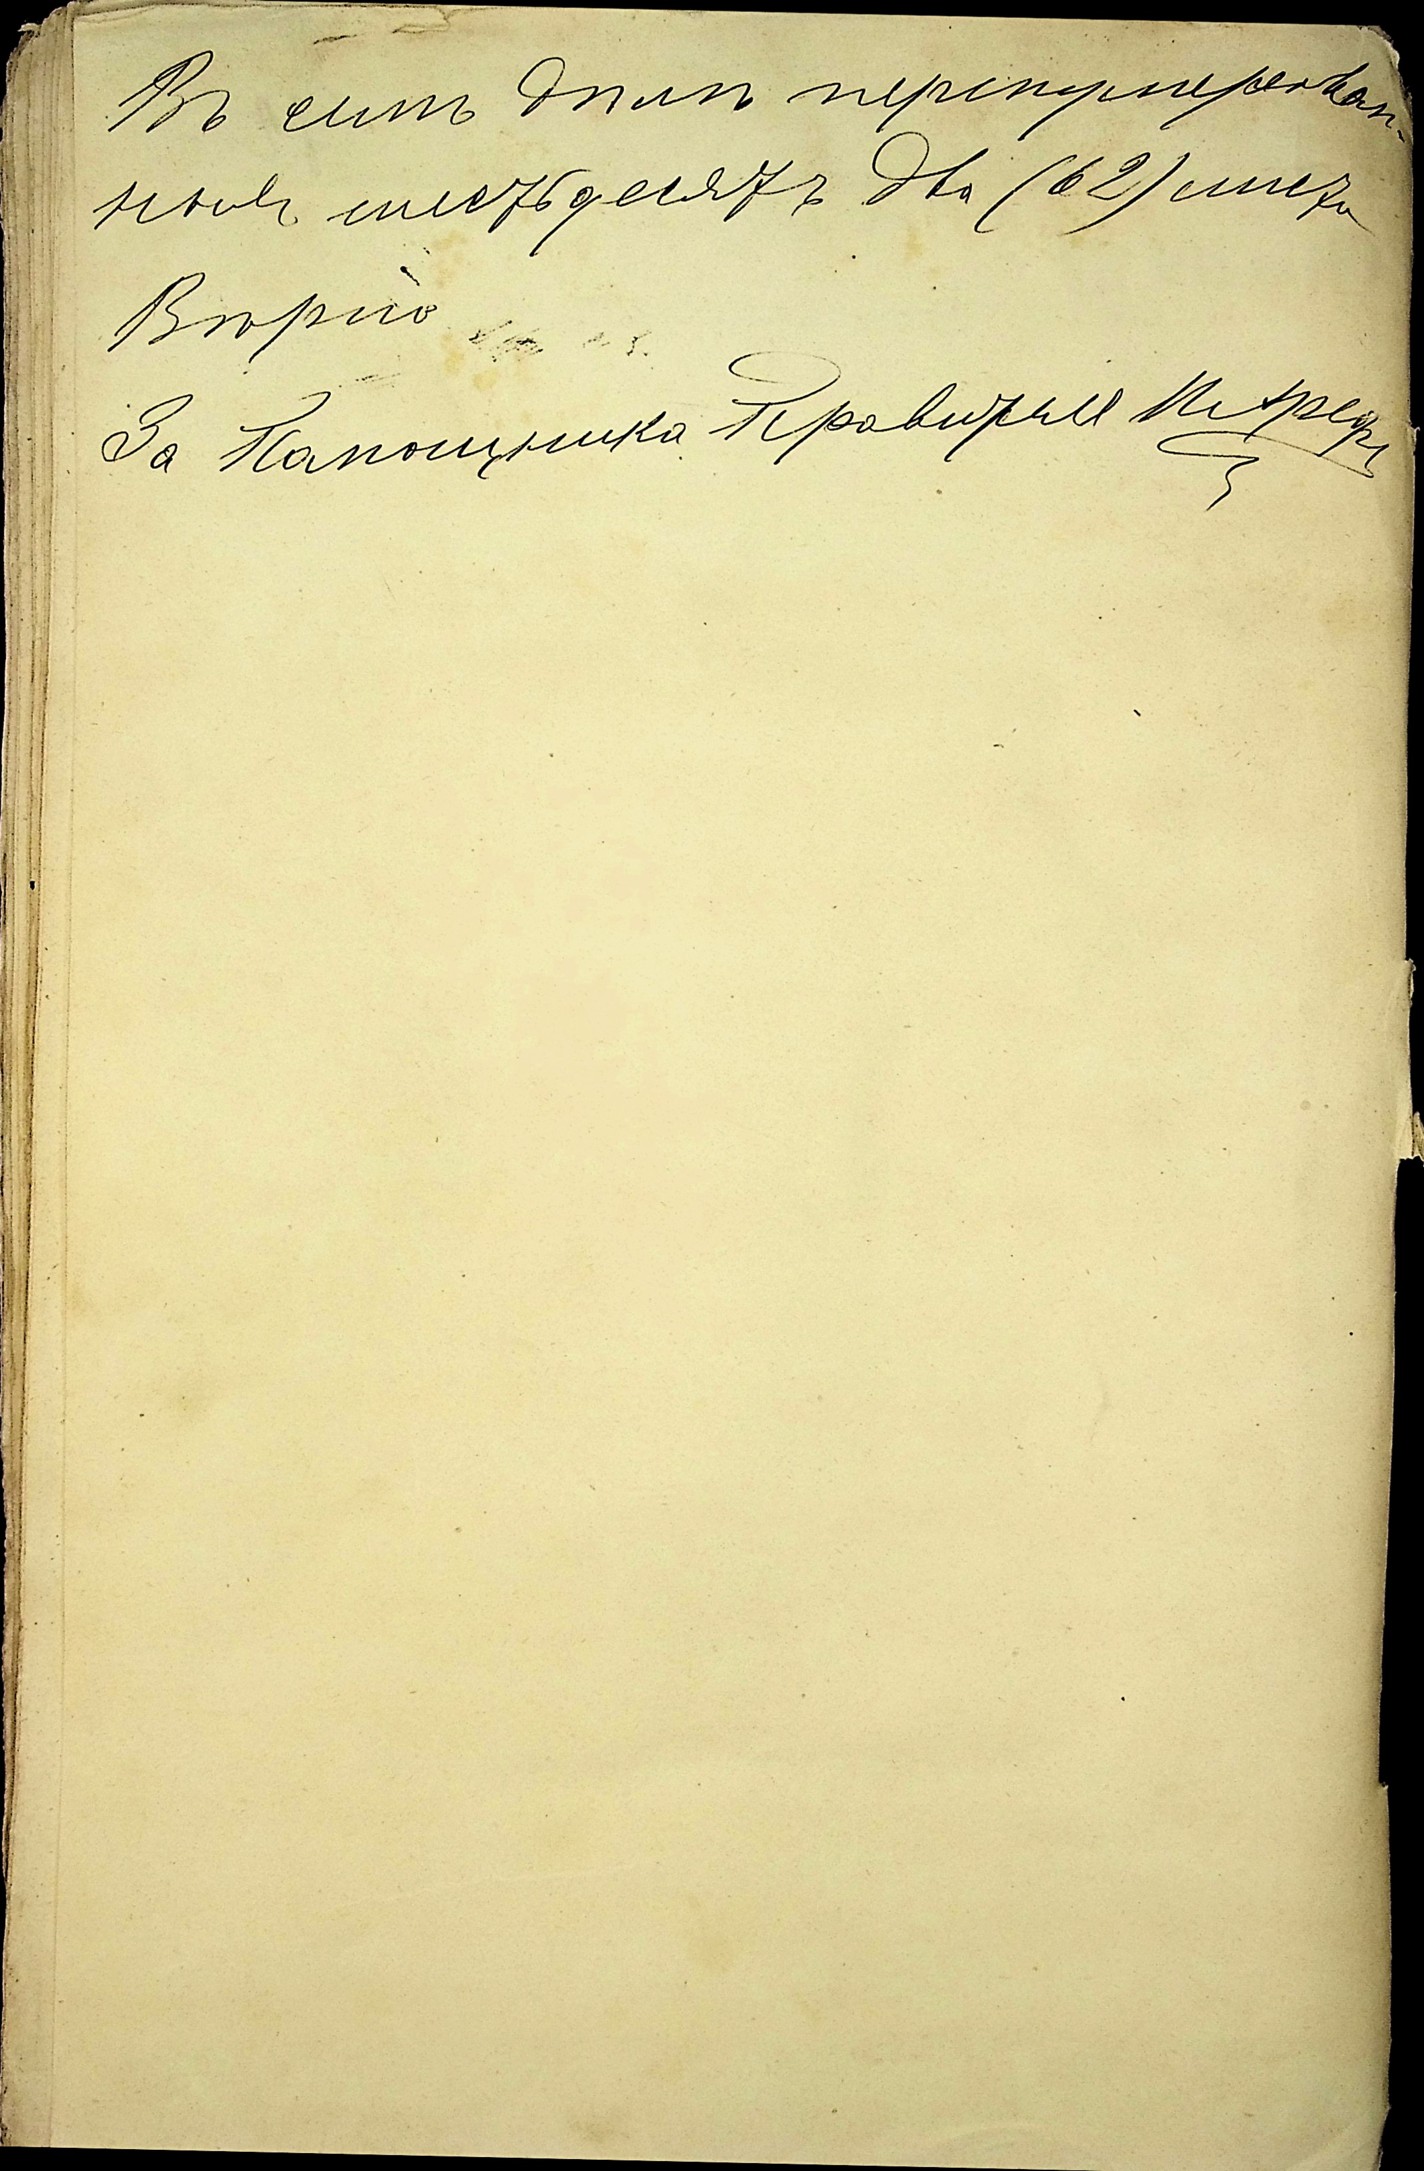 Въ семъ дѣлѣ перенумерован-
ныхъ шестьдесятъ два (62) листа
Вѣрно
За Помощника Правителя